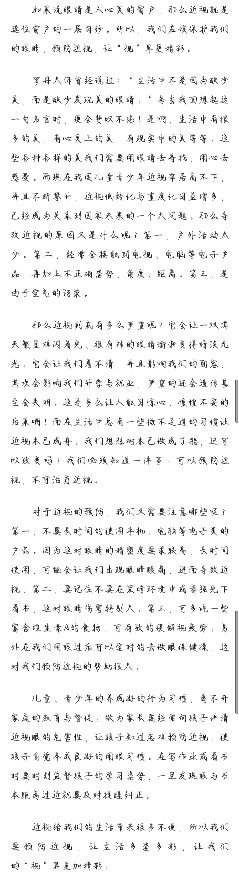 如果说眼睛是人心灵的窗户，那么近视就是
蒙住窗户的一层白纱。所以，我们应该保护我们
的眼睛，预防近视，让“视”界更精彩。
罗丹人曾经说过：“生活中不是因为缺少
美，而是缺少发现美的眼睛。”每当我回想起这
一句名言时，便会赞叹不已！是啊，生活中有很
多的美，有心灵上的美，有现实中的美等等。这
些各种各样的美我们需要用眼睛去寻找，用心去
感受。而现在我国儿童青少年近视率居高不下，
并且不断攀升，近视低龄化与重度化日益增多，
已经成为关系到国家未来的一个大问题。那么导
致近视的原因又是什么呢？第一，户外活动太
少。第二，经常会接触到电视、电脑等电子产
品，再加上不正确姿势、角度、距离。第三，是
由于空气的污染。
那么近视到底有多么严重呢？它会让一双满
天繁星
光；它会让我们看不清，并且影响我们的面容，
其次会影响我们升学与就业，严重的还会遗传甚
至会失明。这是多么让人触目惊心、惶惶不安的
后果啊！而在生活中总有一些微不足道的习惯让
近视木已成舟。我们想想树木已做成了船，还可
以改变吗？我们必须知道一件事：可以预防近
视，不可治愈近视。
对于近视的预防，我们又需要注意哪些呢？
第一，不要长时间的使用手机、电脑等电子类的
产品。因为这对眼睛的精密度要求较高，长时间
使用，可能会让我们出现眼睛酸痛，进而导致近
视。第二，要记住不要在黑暗环境中或者强光下
看书，这对眼睛伤害特别大。第三，可多吃一些
富含维生素A的食物，可有效的缓解视疲劳。另
外在我们用眼过后可以定时的去做眼保健操，这
对我们预防近视的帮助很大。
儿童、青少年的养成好的行为习惯，离不开
家庭的教育与督促，做为家长要经常向孩子讲清
近视眼的危害性，让孩子知道怎样预防近视，使
孩子自觉养成良好的用眼习惯。在写作业或看书
时要时刻监督孩子的学习姿势，一旦发现眼与书
本距离过近就要及时提醒纠正。
近视给我们的生活带来很多不便，所以我们
要预防近视，让生活多姿多彩，让我们
的“视”界更加精彩。